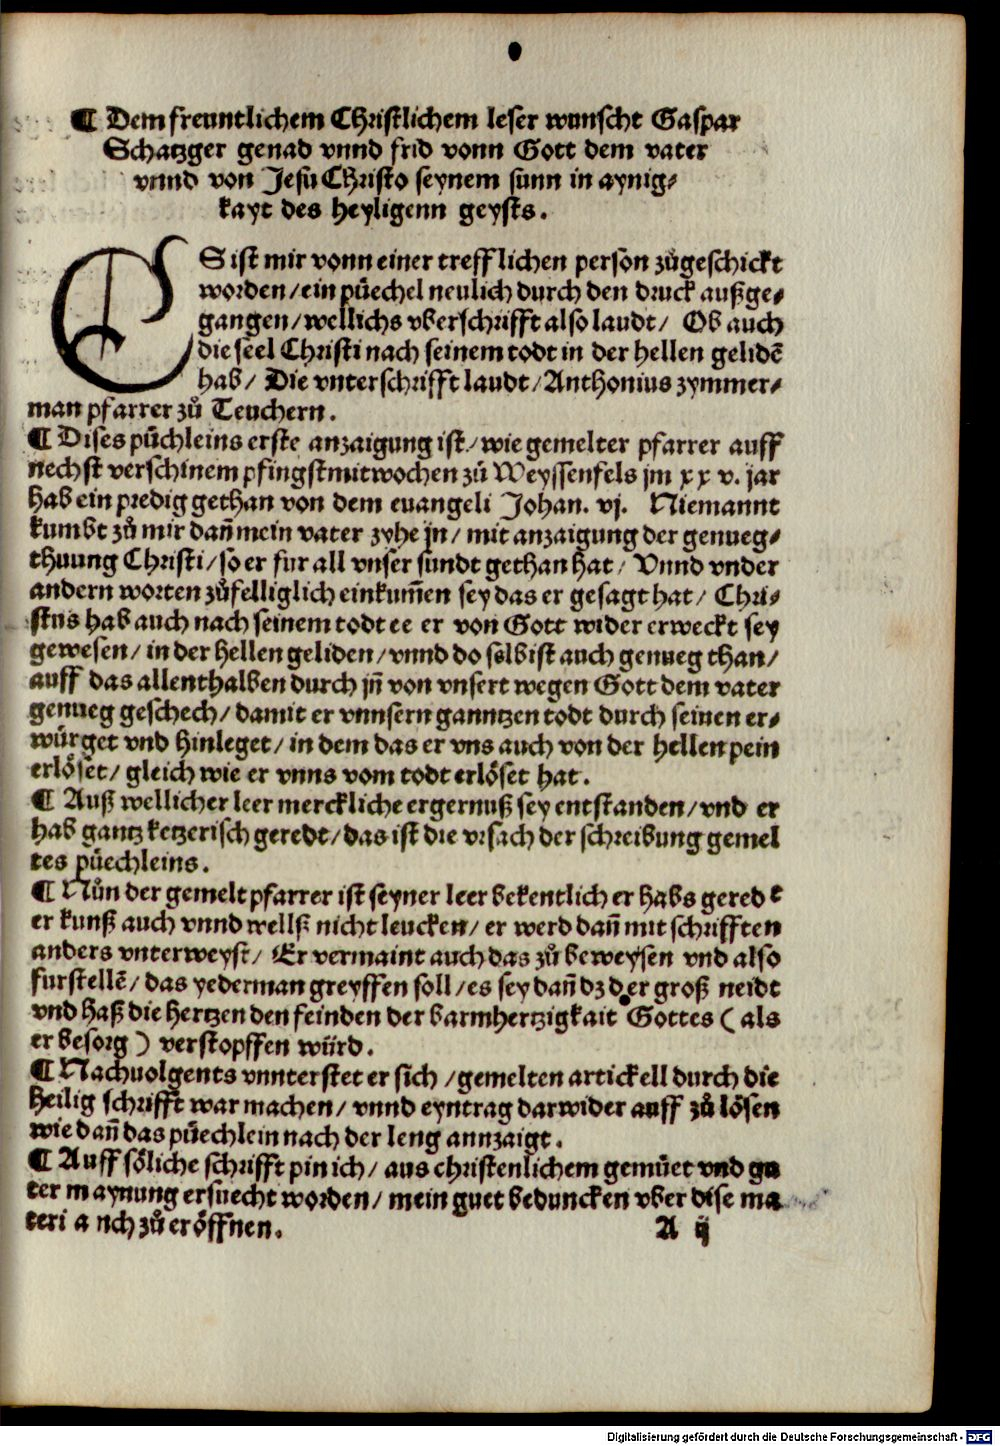 ¶ Dem freuntlichem Christlichem leser wunscht Gaspar
Schatzger genad vnnd frid vonn Gott dem vater
vnnd von Jesu Christo seynem sunn in aynig⸗
kayt des heyligenn geysts.
ES ist mir vonn einer trefflichen person zůgeschickt
worden/ein půechel neulich durch den druck außge⸗
gangen/wellichs vberschrifft also laudt/ Ob auch
die seel Christi nach seinem todt in der hellen gelidē
hab/ Die vnterschrifft laudt/Anthonius zymmer⸗
man pfarrer zů Teuchern.
¶ Dises půchleins erste anzaigung ist/wie gemelter pfarrer auff
nechst verschinem pfingstmitwochen zů Weyssenfels jm xxv. jar
hab ein predig gethan von dem euangeli Johan. vj. Niemannt
kumbt zů mir dañ mein vater zyhe jn/ mit anzaigung der genueg⸗
thuung Christi/so er fur all vnser sundt gethan hat/ Vnnd vnder
andern worten zůfelliglich einkum̄en sey das er gesagt hat/ Chri⸗
stus hab auch nach seinem todt ee er von Gott wider erweckt sey
gewesen/in der hellen geliden/vnnd do selbist auch genueg than/
auff das allenthalben durch jñ von vnsert wegen Gott dem vater
genueg geschech/damit er vnnsern ganntzen todt durch seinen er⸗
würget vnd hinleget/in dem das er vns auch von der hellen pein
erlöset/gleich wie er vnns vom todt erlöset hat.
¶ Auß wellicher leer merckliche ergernuß sey entstanden/vnd er
hab gantz ketzerisch geredt/das ist die vrsach der schreibung gemel
tes půechleins.
¶ Nůn der gemelt pfarrer ist seyner leer bekentlich er habs geredt
er kunß auch vnnd wellß nicht leucken/er werd dañ mit schrifften
anders vnterweyst/ Er vermaint auch das zů beweysen vnd also
furstellē/das yederman greyffen soll/es sey dañ dz der groß neidt
vnd haß die hertzen den feinden der barmhertzigkait Gottes (als
er besorg) verstopffen würd.
¶ Nachuolgents vnnterstet er sich/gemelten artickell durch die
heilig schrifft war machen/vnnd eyntrag darwider auff zů lösen
wie dañ das půechlein nach der leng annzaigt.
¶ Auff söliche schrifft pin ich/aus christenlichem gemůet vnd gu
ter maynung ersuecht worden/mein guet beduncken vber dise ma
teri auch zů eröffnen.
A ij
Digitalisierung gefördert durch die Deutsche Forschungsgemeinschaft - DFG